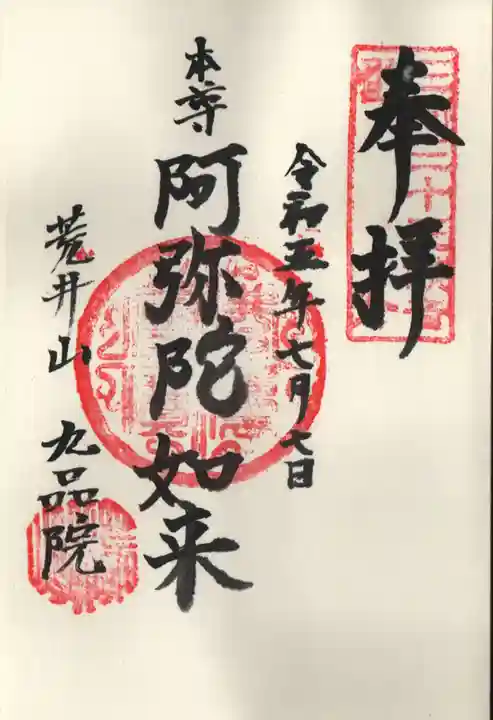 奉拝
令和五年七月七日
本尊
阿弥陀如来
荒井山 九品院